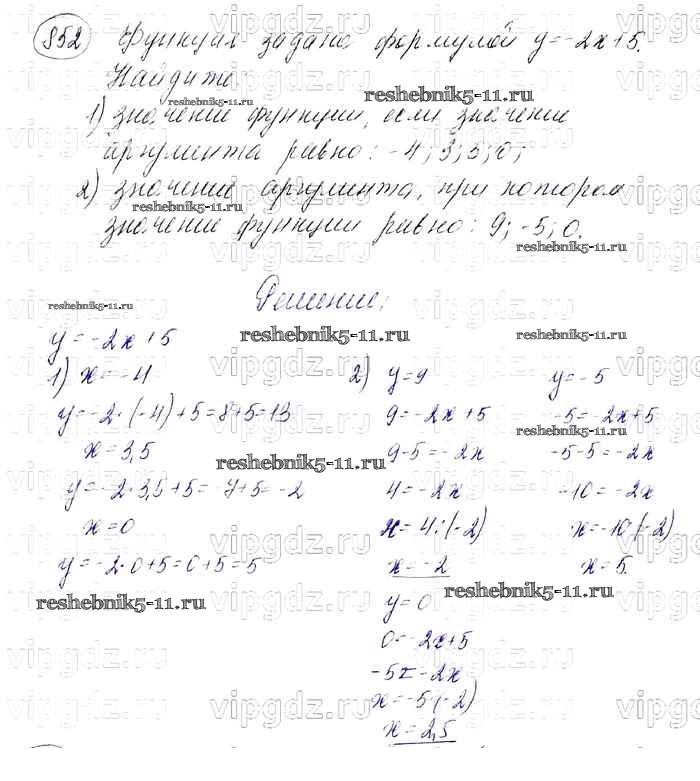 852 Функция задана формулой y=-2x+5.
Найдите:
reshebnik5-11.ru
reshebnik5-11.ru
1) значение функции, если значение
аргумента равно: -4; 3,5; 0;
2) значение аргумента, при котором
reshebnik5-11.ru
значение функции равно: 9; -5; 0.
reshebnik5-11.ru
Решение:
reshebnik5-11.ru
reshebnik5-11.ru
reshebnik5-11.ru
y=-2x+5
1) x=-4
y=-2·(-4)+5=8+5=13
x=3,5
reshebnik5-11.ru
y=-2·3,5+5=-7+5=-2
x=0
y=-2·0+5=0+5=5
reshebnik5-11.ru
2) y=9
9=-2x+5
9-5=-2x
4=-2x
x=4:(-2)
x=-2
y=-5
-5=-2x+5
reshebnik5-11.ru
-5-5=-2x
-10=-2x
x=-10:(-2)
x=5.
reshebnik5-11.ru
y=0
0=-2x+5
-5=-2x
x=-5:(-2)
x=2,5
vipgdz.ru